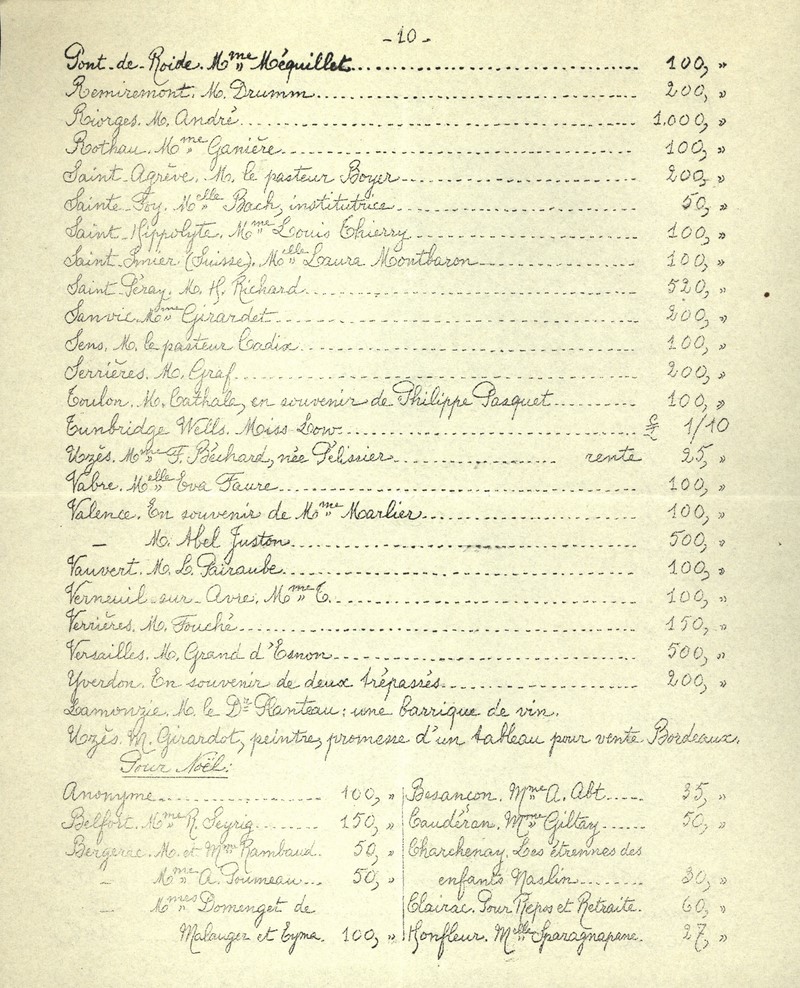 - 10 -
Pont-de-Roide. Mme Méquillet 100, »
Remiremont. M. Drumm 200, »
Riorges. M. André 1.000, »
Rothau. Mme Ganière 100, »
Saint-Agrève. M. le pasteur Boyer 200, »
Sainte-Foy. Melle Bach, institutrice 50, »
Saint-Hippolyte. Mme Louis Thierry 100, »
Saint-Imier (Suisse). Melle Laura Montbaron 100, »
Saint-Péray. M. H. Richard 520, »
Sanvic. Mme Girardet 200, »
Sens. M. le pasteur Cadix 100, »
Serrières. M. Graf 200, »
Toulon. M. Cathala, en souvenir de Philippe Pasquet 100, »
Tunbridge Wells. Miss Low £ 1/10
Uzès. Mme F. Béchard, née Pélissier rente 25, »
Vabre. Melle Eva Faure 100, »
Valence. En souvenir de Mme Marlier 100, »
— M. Abel Juston 500, »
Vauvert. M. L. Pairaube 100, »
Verneuil-sur-Avre. Mme T. 100, »
Verrières. M. Fouché 150, »
Versailles. M. Grand d'Esnon 500, »
Yverdon. En souvenir de deux trépassés 200, »
Lamonzie. M. le Dr Planteau: une barrique de vin.
Uzès. M. Girardot, peintre, promesse d'un tableau pour vente Bordeaux.
Pour Noël:
Anonyme 100, »
Belfort. Mme R. Seyrig 150, »
Bergerac. M. et Mme Rambaud 50, »
— Mme A. Poumeau 50, »
— Mmes Domenget de
Malauger et Eyma. 100, »
Besançon. Mme A. Abt 35, »
Caudéran. Mme Giltay 50, »
Charchenay. Les étrennes des
enfants Naslin 30, »
Clairac. Pour Repos et Retraite. 60, »
Honfleur. Melle Sparagnapane. 27, »